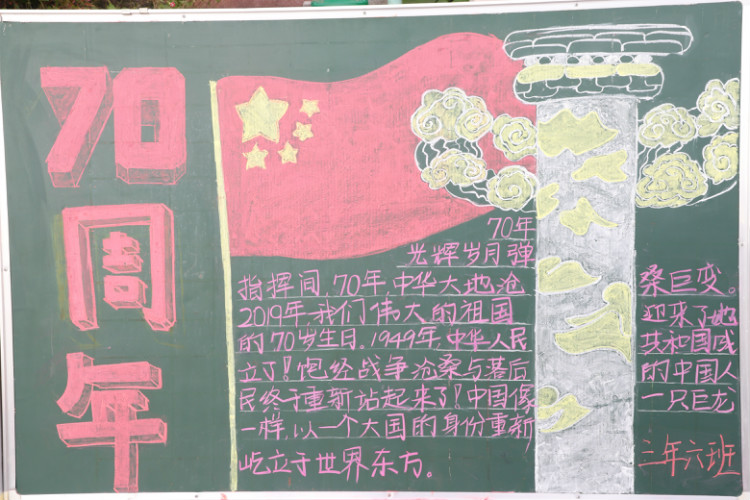 70周年
70年
光辉岁月弹
指挥间,70年,中华大地沧桑巨变。
2019年,我们伟大的祖国迎来了她
的70岁生日。1949年,中华人民共和国成
立了!饱经战争沧桑与落后的中国人
民终于重新站起来了!中国像一只巨龙
一样,以一个大国的身份重新
屹立于世界东方。
三年六班